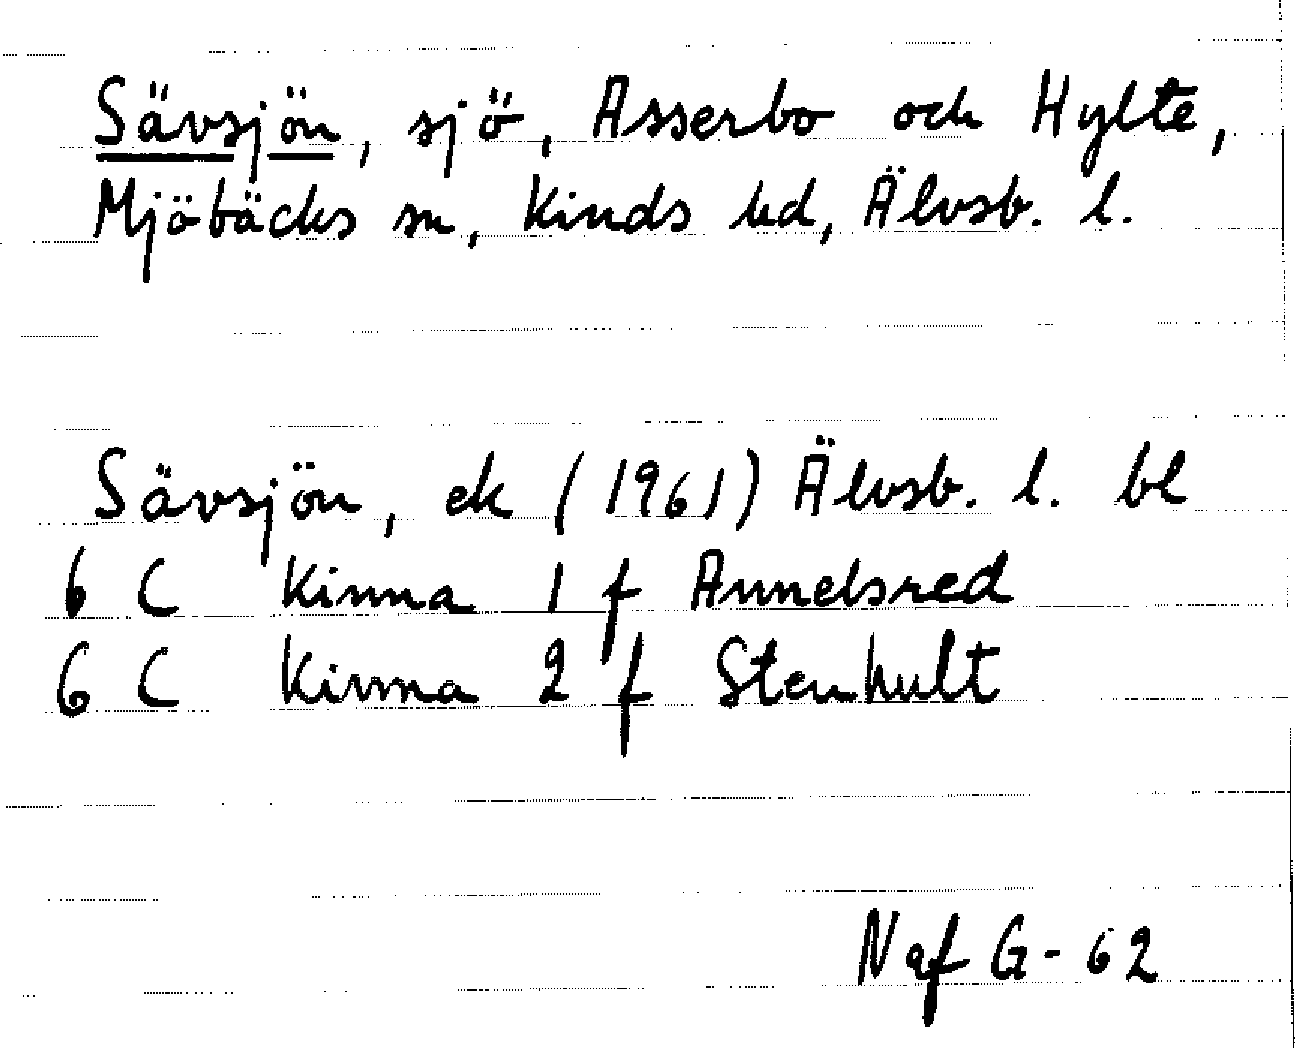 Sävsjön, sjö, Asserbo och Hylte,
Mjöbäcks sn, Kinds hd, Älvsb. l.
Sävsjön, ek (1961) Älvsb. l. bl
6 C Kinna 1 f Annelsred
6 C Kinna 2 f Stenhult
Naf G-62